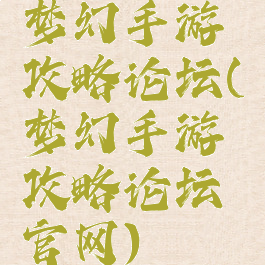 梦幻手游
攻略论坛(
梦幻手游
攻略论坛
官网)